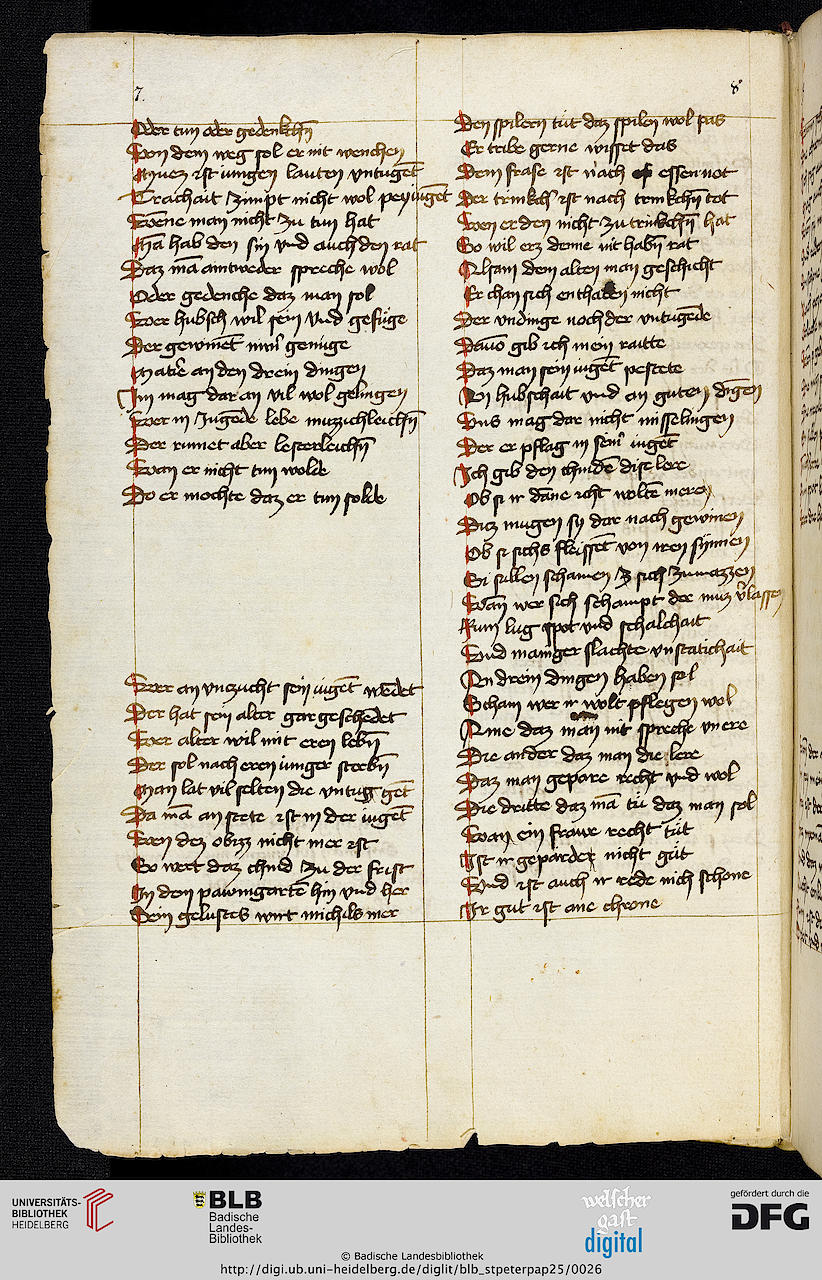 7.
Oder tun oder gedenkchn̄
Von dem weg sol er nit wenchen
Muez ist iungen lauten vntugēt
Trachait zimpt nicht wol pey iugēt
Wenne man nicht zu tun hat
Mā hab den sin vnd auch den rat
Daz mā aintweder spreche wol
Oder gedenche daz man sol
Wer hubsch wil sein vnd gefuge
Der gewinet genuge
an den drein dingen
Im mag dar an vil wol gelingen
Wer in Jugēde lebe
Der rumet aber lesterleichn̄
Wan er nicht tun wolde
Do er mochte daz er tun solde
Wer an vnczucht sein iugēt wēdet
Der hat sein alter gar geschēdet
Wer alter wil mit eren lebn̄
Der sol nach eren iunger strebn̄
Man lat vil selten die vntugēt
Da mā an stete ist in der iugēt
Wen dez obizz nicht mer ist
So wert daz chind zu der frist
In dem pawmgartē hin vnd her
Dein gelustes wirt michils mer
8
Den spilern tüt daz spilen wol pas
Er teibe gerne wisset das
Dem frase ist nach essen not
Der trinkch ist nach trinkchn̄ tot
Wen er den nicht zu trinkchn̄ hat
So wil erz denne nit habn̄ rat
Alsam dem alten man geschicht
Er chan sich enthaben nicht
Der vndinge noch der vntugēde
Dauō gib ich mein raitte
Daz man sein iugēt pestete
An hubschait vnd an guten digen
Vns mag dar nicht misselingen
Der er pflag in seinr iugēt
Ich gib den chindē dise lere
Ob si ir dāne icht woltē meren
Diz mugen sy dar nach gewinen
Ob si sichs fleissēt von iren synnen
Si sullen schamen sich zumazzen
Wan wer sich schampt der muz vlassen
Rum lug spot vnd schalchait
Vnd mainger slachte vnstatichait
An drein dingen haben sol
Scham wer ir wolt pflegen wol
Aine daz man nit spreche vnere
Die ander daz man die lere
Daz man gepare recht vnd wol
Die dritte daz mā tü daz man sol
Wan ein frawe recht tüt
Ist ir geparde nicht güt
Vnd ist auch ir rede nich schone
Ir gut ist ane chrone
UNIVERSITÄTS-
BIBLIOTHEK
HEIDELBERG
BLB
Badische
Landes-
Bibliothek
welscher
gast
digital
gefördert durch die
DFG
© Badische Landesbibliothek
http://digi.ub.uni-heidelberg.de/diglit/blb_stpeterpap25/0026